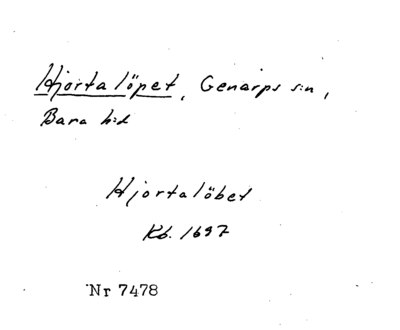 Hjortalöpet, Genarps s:n,
Bara h:d
Hjortalöbet
Kb. 1697
Nr 7478